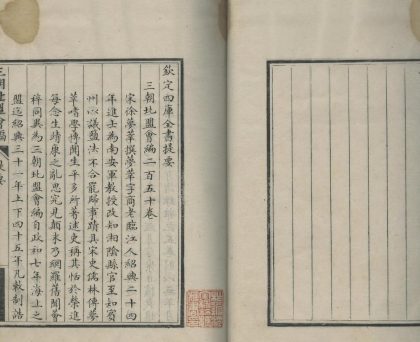 欽定四庫全書提要
三朝北盟會編二百五十卷
宋徐夢莘撰夢莘字商老臨江人紹興二十四
年進士為南安軍教授改知湘陰縣官至知賓
州以議鹽法不合罷歸事蹟具宋史儒林傳夢
莘嗜學博聞生平多所著述史稱其恬於榮進
每念生靖康之亂思究見顛末乃網羅舊聞會
稡同異為三朝北盟會編自政和七年海上之
盟迄紹興三十一年上下四十五年凡敕制誥
三朝北盟會編
提要